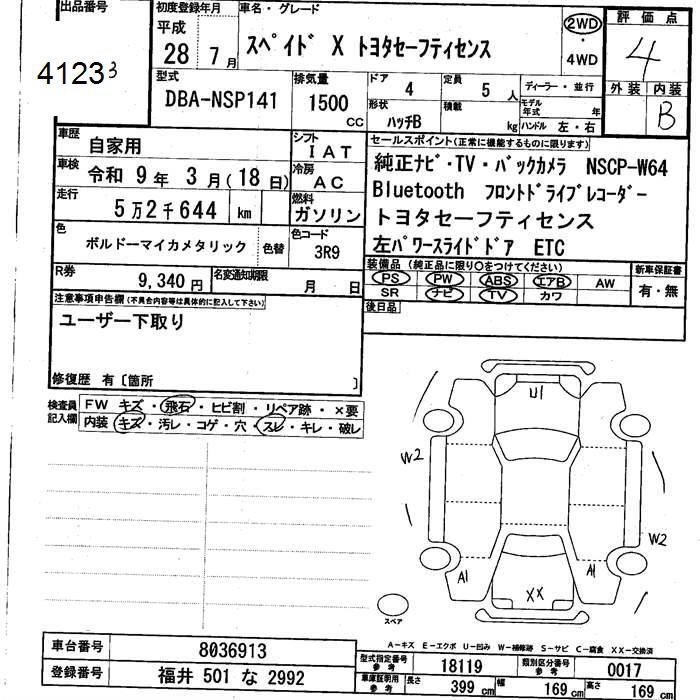 出品番号
41233
初度登録年月
平成
28年 7月
車名・グレード
スペイド X トヨタセーフティセンス
2WD
4WD
評価点
4
外装
内装
B
型式
DBA-NSP141
排気量
1500
CC
ドア
4
形状
ハッチB
定員
5人
積載
kg
ディーラー・並行
モデル年式
年
ハンドル 左・右
車歴
自家用
シフト
IAT
車検
令和 9年 3月(18日)
冷房
AC
走行
5万2千644 km
燃料
ガソリン
色
ボルドーマイカメタリック
色替
色コード
3R9
R券
9,340円
名変通知期限
月 日
セールスポイント(正常に機能するものに限ります)
純正ナビ・TV・バックカメラ NSCP-W64
Bluetooth フロントドライブレコーダー
トヨタセーフティセンス
左パワースライドドア ETC
装備品 (純正品に限り○をつけてください)
PS PW ABS エアB AW
SR ナビ TV カワ
新車保証書
有・無
後日品
注意事項申告欄(不具合内容等は具体的に記入して下さい)
ユーザー下取り
修復歴 有〔箇所 〕
検査員記入欄
FW キズ・飛石・ヒビ割・リペア跡・×要
内装・キズ・汚レ・コゲ・穴・スレ・キレ・破レ
U1
W2
W2
A1
A1
XX
スペア
A-キズ E-エクボ U-凹み W-補修跡 S-サビ C-腐食 XX-交換済
車台番号
8036913
登録番号
福井 501 な 2992
型式指定番号
参考
18119
類別区分番号
参考
0017
車庫証明用
参考
長さ
399 cm
幅
169 cm
高さ
169 cm